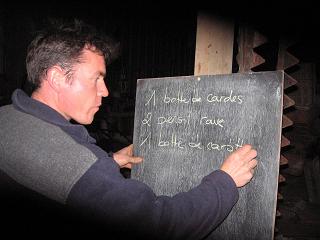 1 botte de cardes
2 persil rave
1 botte de carott